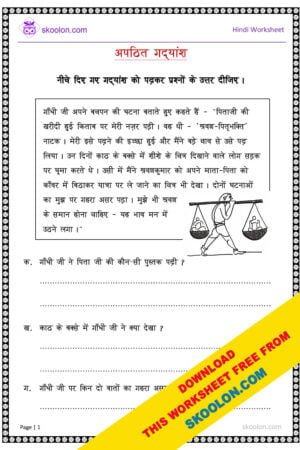 skoolon.com
Hindi Worksheet
अपठित गद्यांश
नीचे दिए गए गद्यांश को पढ़कर प्रश्नों के उत्तर दीजिए ।
गाँधी जी अपने बचपन की घटना बताते हुए कहते हैं - "पिताजी की
खरीदी हुई किताब पर मेरी नज़र पड़ी । वह थी - 'श्रवण-पितृभक्ति'
नाटक । मेरी इसे पढ़ने की इच्छा हुई और मैंने बड़े चाव से उसे पढ़
लिया । उन दिनों काठ के बक्से में शीशे के चित्र दिखाने वाले लोग सड़क
पर घूमा करते थे । उसी में मैंने श्रवणकुमार को अपने माता-पिता को
काँवर में बिठाकर यात्रा पर ले जाने का चित्र भी देखा । दोनों घटनाओं
का मुझ पर गहरा असर पड़ा । मुझे भी श्रवण
के समान होना चाहिए - यह भाव मन में
उठने लगा ।"
क. गाँधी जी ने पिता जी की कौन-सी पुस्तक पढ़ी ?
ख. काठ के बक्से में गाँधी जी ने क्या देखा ?
ग. गाँधी जी पर किन दो बातों का गहरा असर
DOWNLOAD
THIS WORKSHEET FREE FROM
SKOOLON.COM
Page | 1
skoolon.com